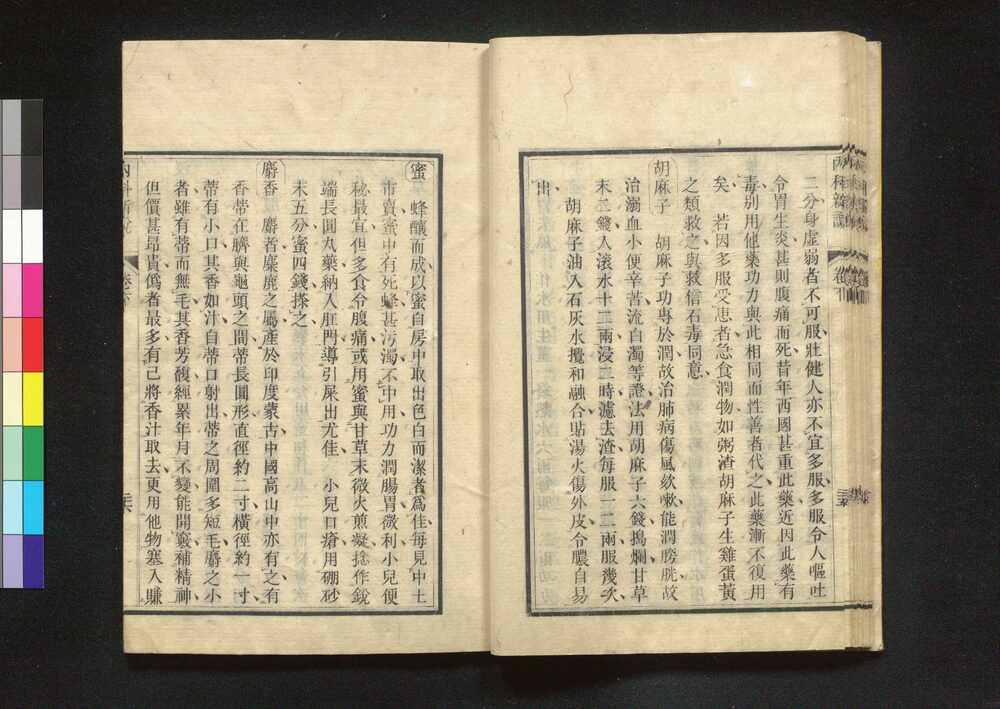 二分身虛弱者不可服壯健人亦不宜多服多服令人嘔吐
令胃生炎甚則腹痛而死昔年西國甚重此藥近因此藥有
毒別用他藥功力與此相同而性善者代之此藥漸不復用
矣 若因多服受患者急食潤物如粥渣胡麻子生雞蛋黃
之類救之與救信石毒同意
胡麻子 胡麻子功專於潤故治肺病傷風欬嗽能潤膀胱故
治溺血小便辛苦流白濁等證法用胡麻子六錢搗爛甘草
末二錢人滾水十二兩浸二時濾去渣每服一二兩服幾次
胡麻子油入石灰水攪和融合貼湯火傷外皮令膿自易
出
蜜 蜂釀而成以蜜自房中取出色白而潔者爲佳每見中土
市賣蜜中有死蜂甚污濁不中用功力潤腸胃微利小兒便
秘最宜但多食令腹痛或用蜜與甘草末微火煎凝捻作銳
端長圓丸藥納入肛門導引屎出尤佳 小兒口瘡用硼砂
末五分蜜四錢搽之
麝香 麝者麋鹿之屬產於印度蒙古中國高山中亦有之有
香蒂在臍與龜頭之間蒂長圓形直徑約二寸橫徑約一寸
蒂有小口其香如汁自蒂口射出蒂之周圍多短毛麝之小
者雖有蒂而無毛其香芳馥經累年月不變能開竅補精神
但價甚昂貴僞者最多有已將香汁取去更用他物塞入賺